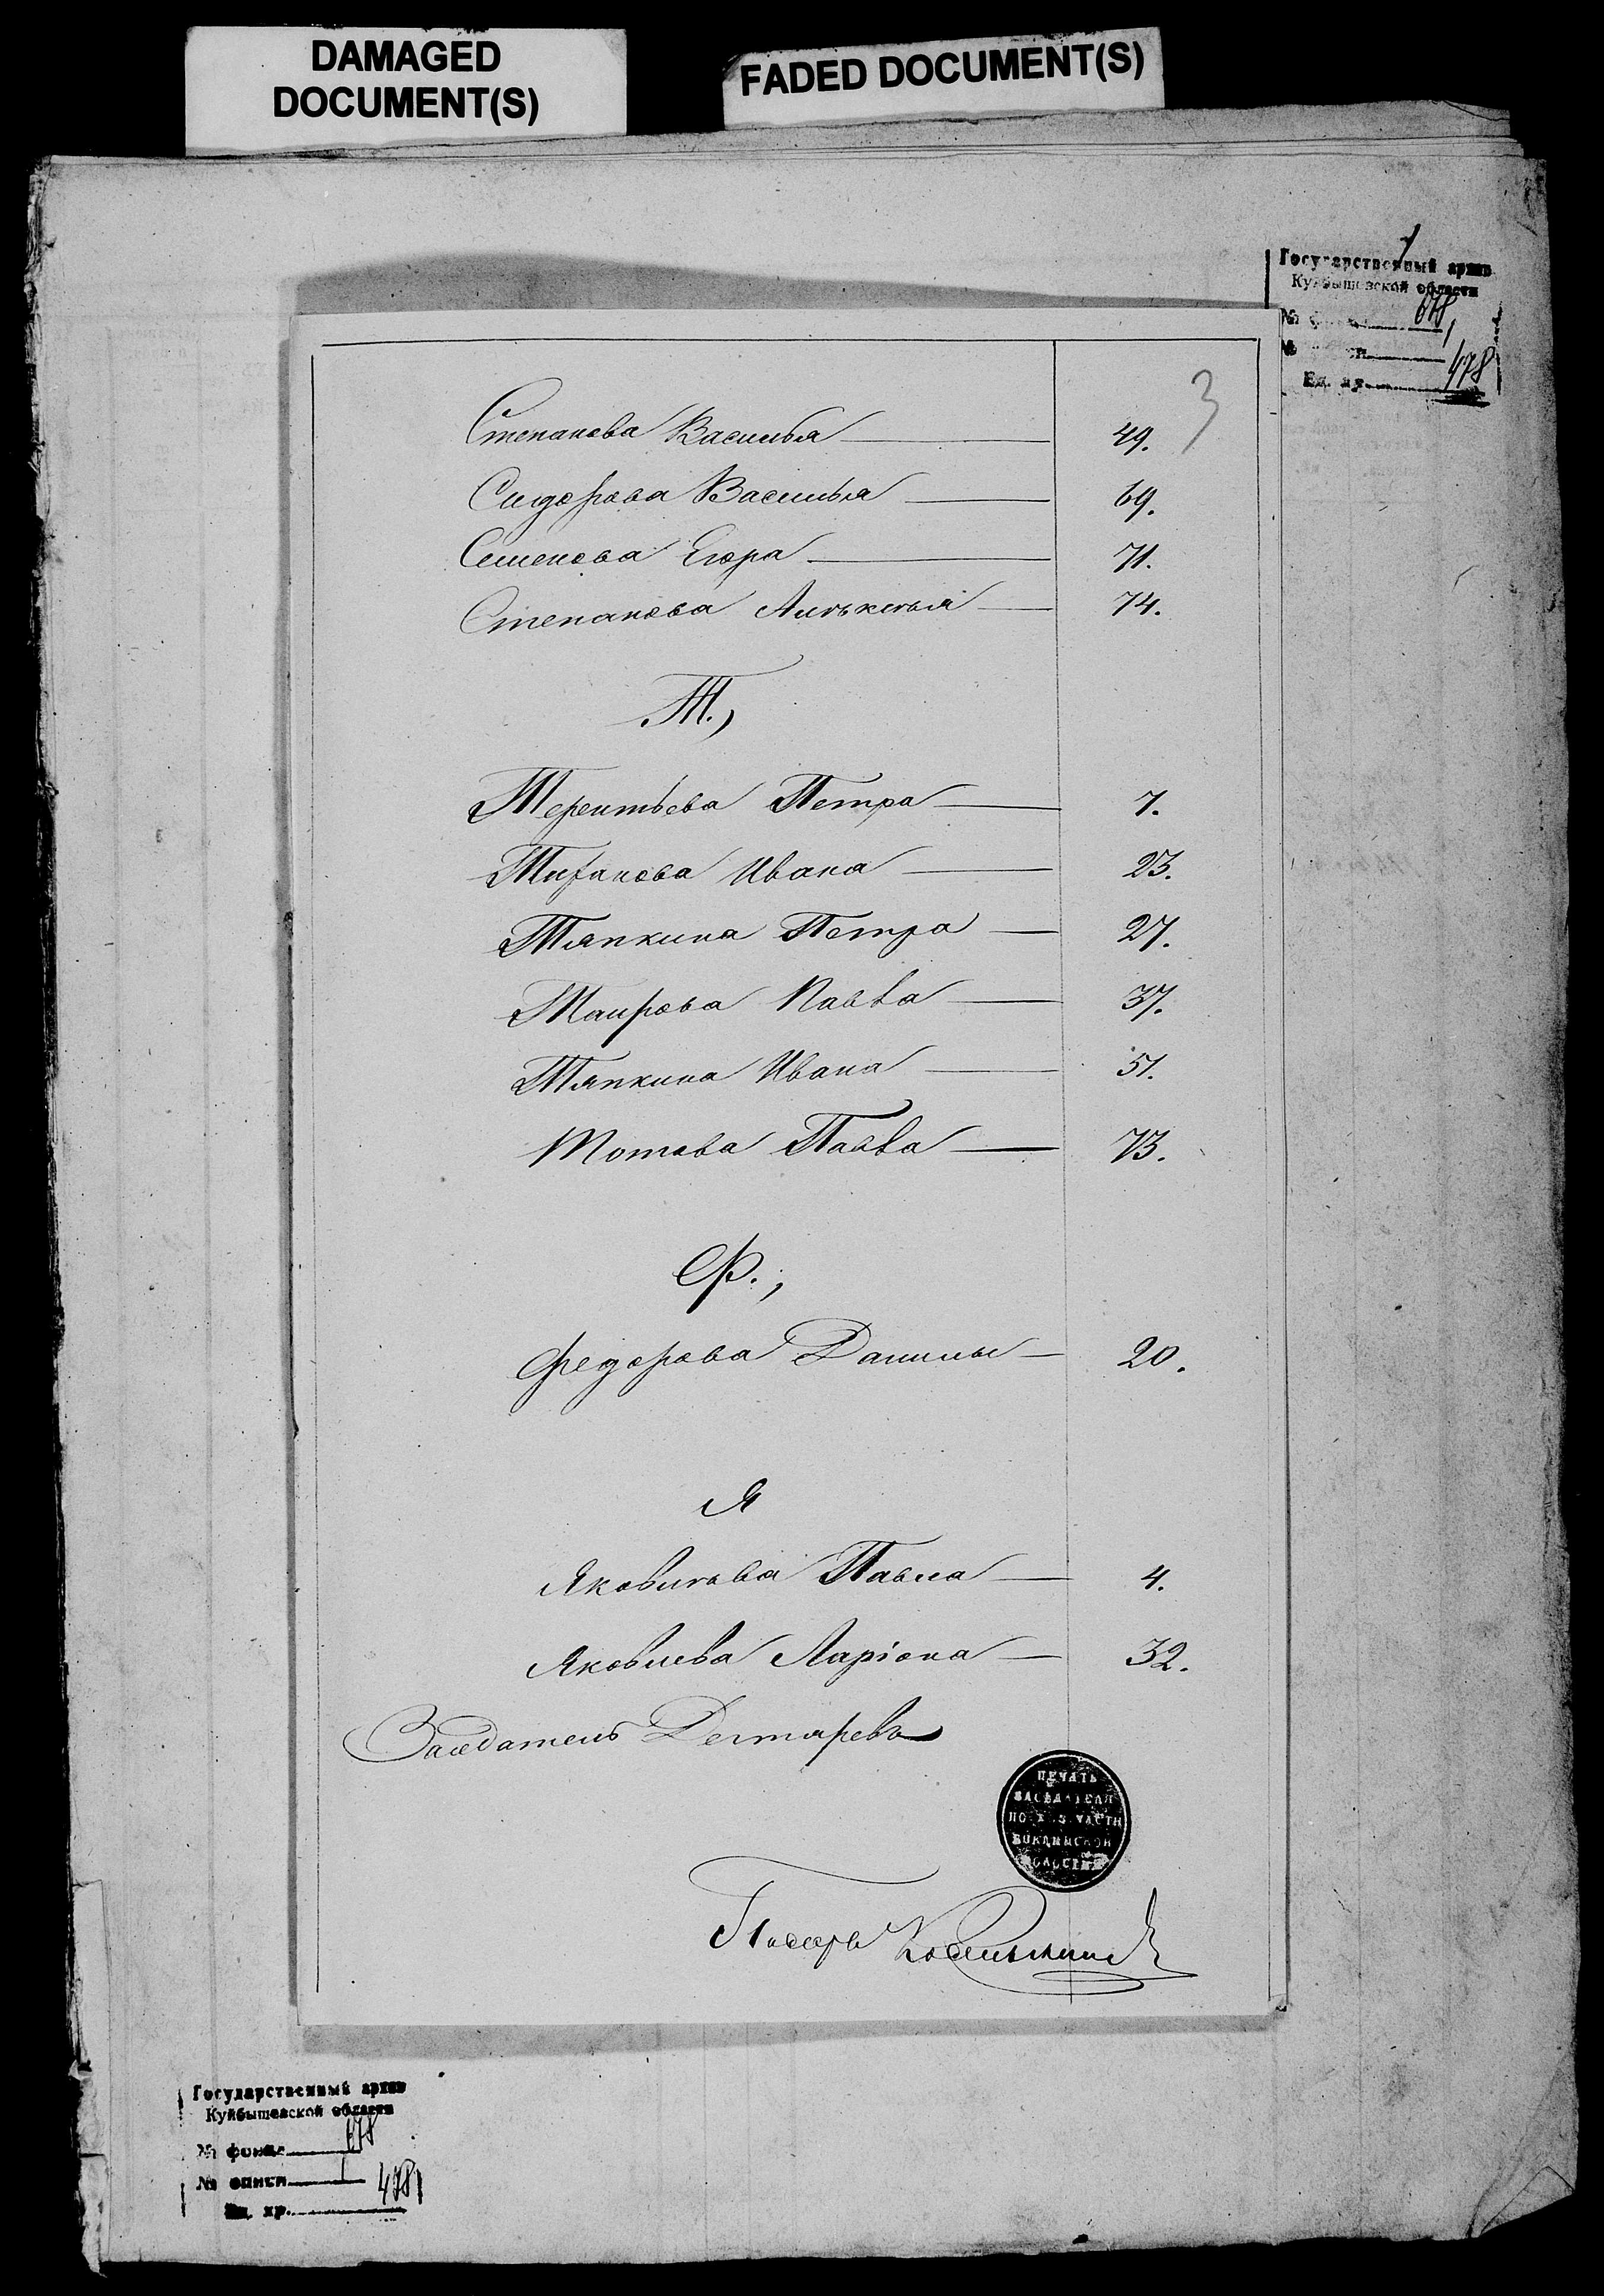 DAMAGED
DOCUMENT(S)
FADED DOCUMENT(S)
Государственный архив
Куйбышевской области
№ 678
№ 1
Ед. хр. 478
3
Степанова Василья 49.
Сидорова Василья 69.
Семенова Егора 71.
Степанова Алѣксѣя 74.
Т.,
Терентьева Петра 7.
Тифанова Ивана 23.
Тяпкина Петра 27.
Таирова Павла 37.
Тяпкина Ивана 51.
Тотова Павла 73.
Ф.,
Федорова Данилы 20.
Я
Яковлѣва Павла 4.
Яковлева Ларіона 32.
Заседатель Дегтяревъ
ПЕЧАТЬ
ЗАСѢДАТЕЛЯ
ПО ХОЗ. ЧАСТИ
ВОЛОСТИ
Писарь
Государственный архив
Куйбышевской области
№ фонда 678
№ описи 1
Ед. хр. 478